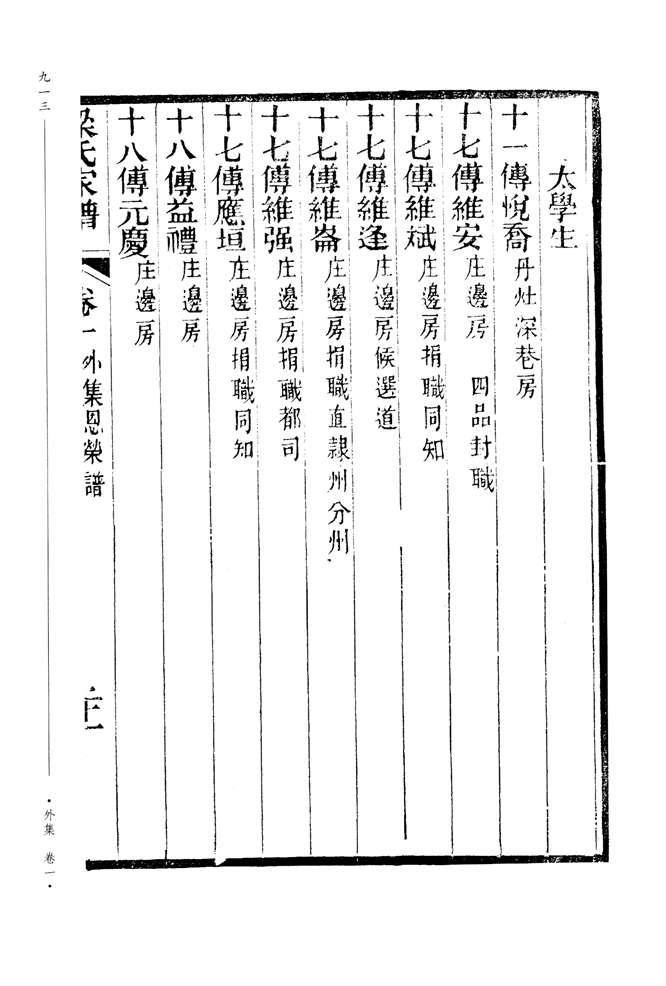 太學生
十一傳悅喬丹灶深巷房
十七傳維安庄邊房 四品封職
十七傳維斌庄邊房捐職同知
十七傳維逢庄邊房候選道
十七傳維崙庄邊房捐職直隸州分州
十七傳維强庄邊房捐職都司
十七傳應垣庄邊房捐職同知
十八傳益禮庄邊房
十八傳元慶庄邊房
梁氏家譜 卷一外集恩榮譜
九一三
·外集 卷一·